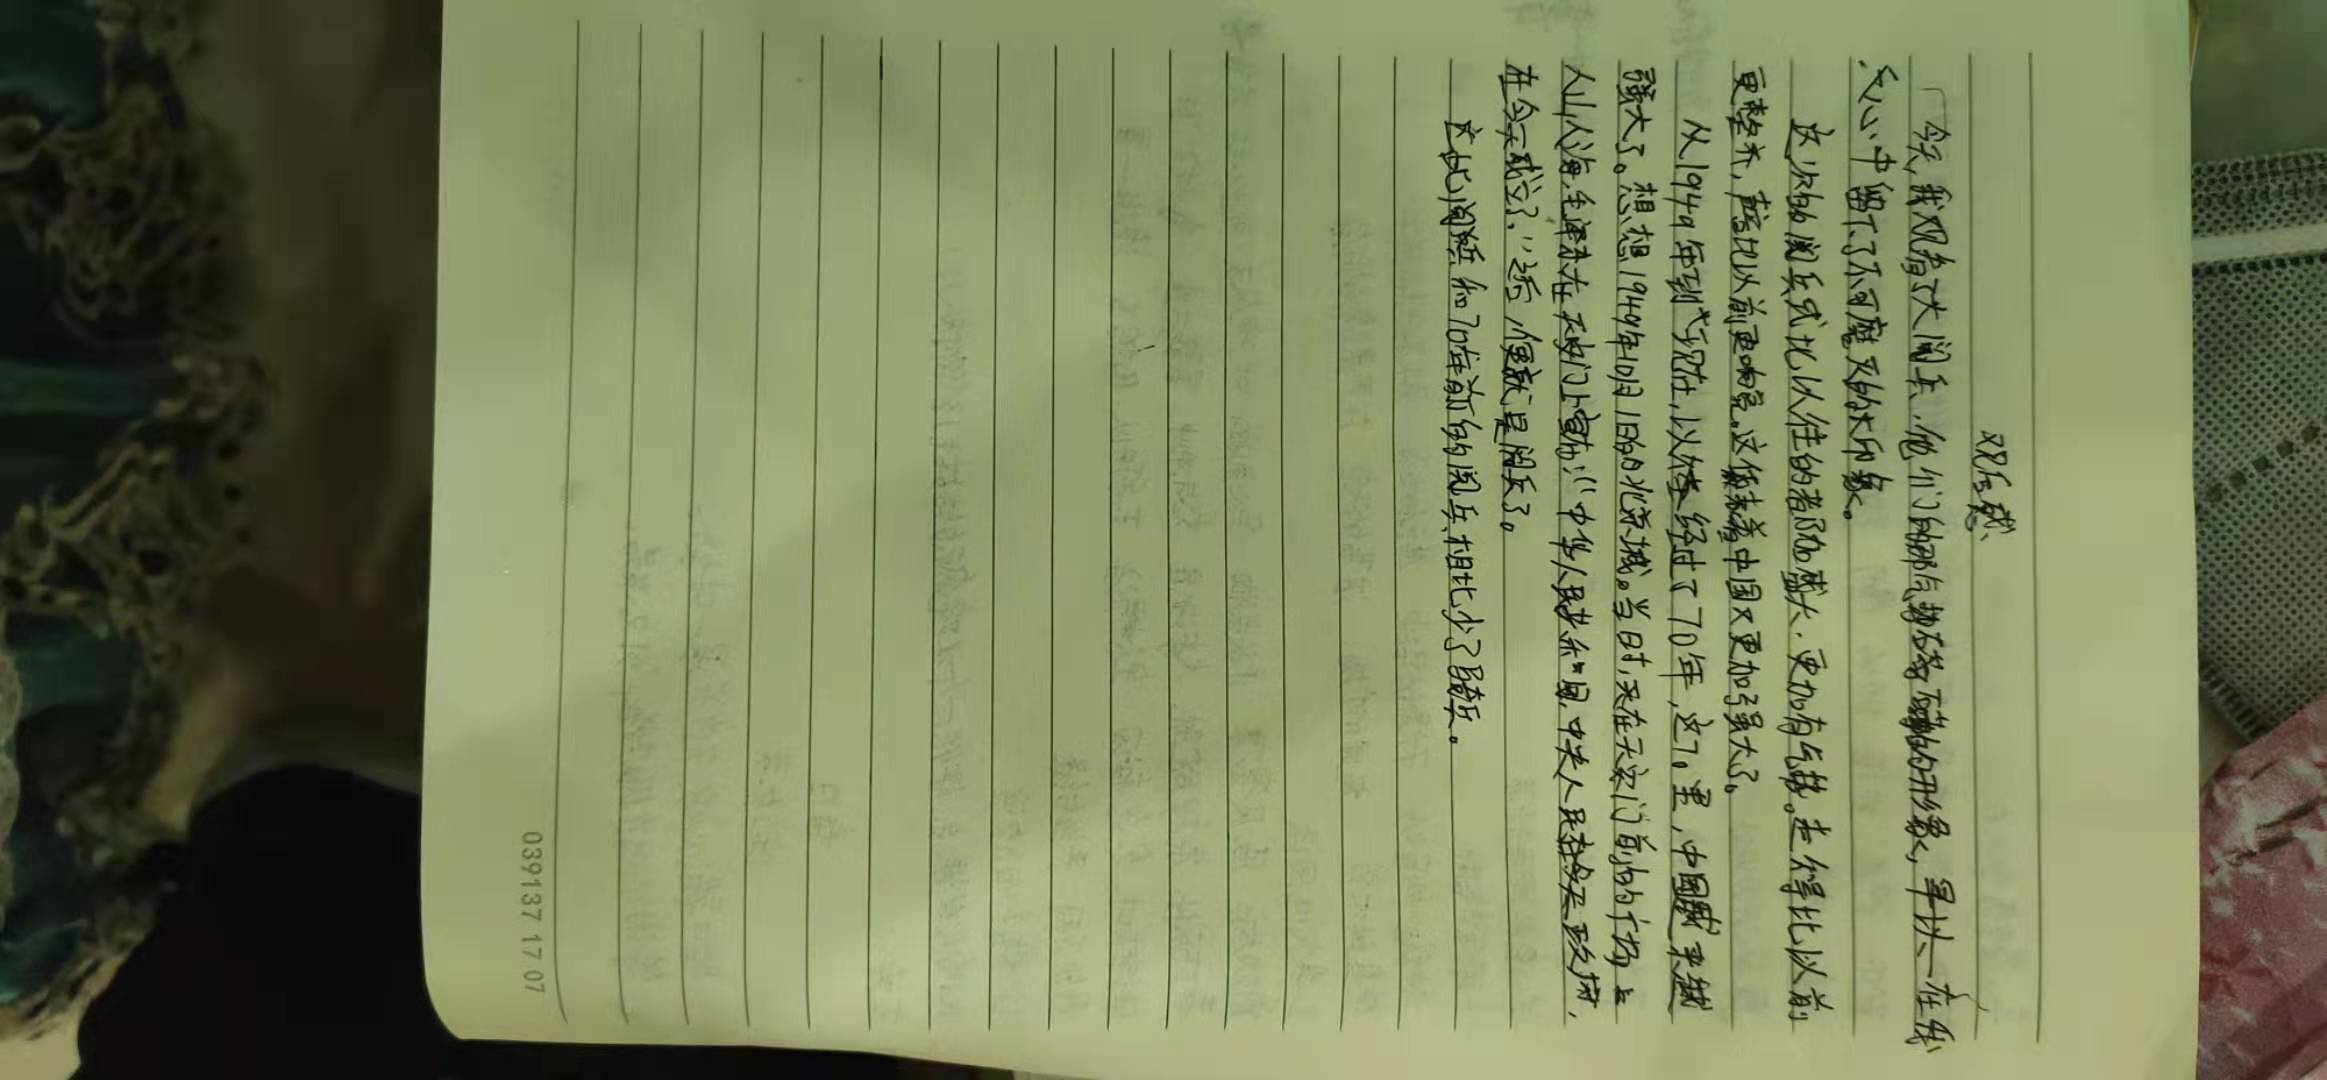 观后感
今天,我观看了大阅兵.他们的那气势的形象,早以在我
心中留下了不可磨灭的大印象。
这次的阅兵式比以往的都隆盛大.更加有气势。走得比以前
更整齐,声音比以前更响亮。这代表着中国又更加了强大了。
从1949年到现在,以经经过了70年,这70里,中国越来越
强大了。想想1949年10月1日的北京城。当日时,天在天安门前的广场上
人山人海,毛泽东在天安门上宣布:“中华人民共和国,中央人民政府,
在今天成立了.”之后,便就是阅兵了。
这此阅兵和70年前的阅兵相比少了骑兵。
039137 17 07